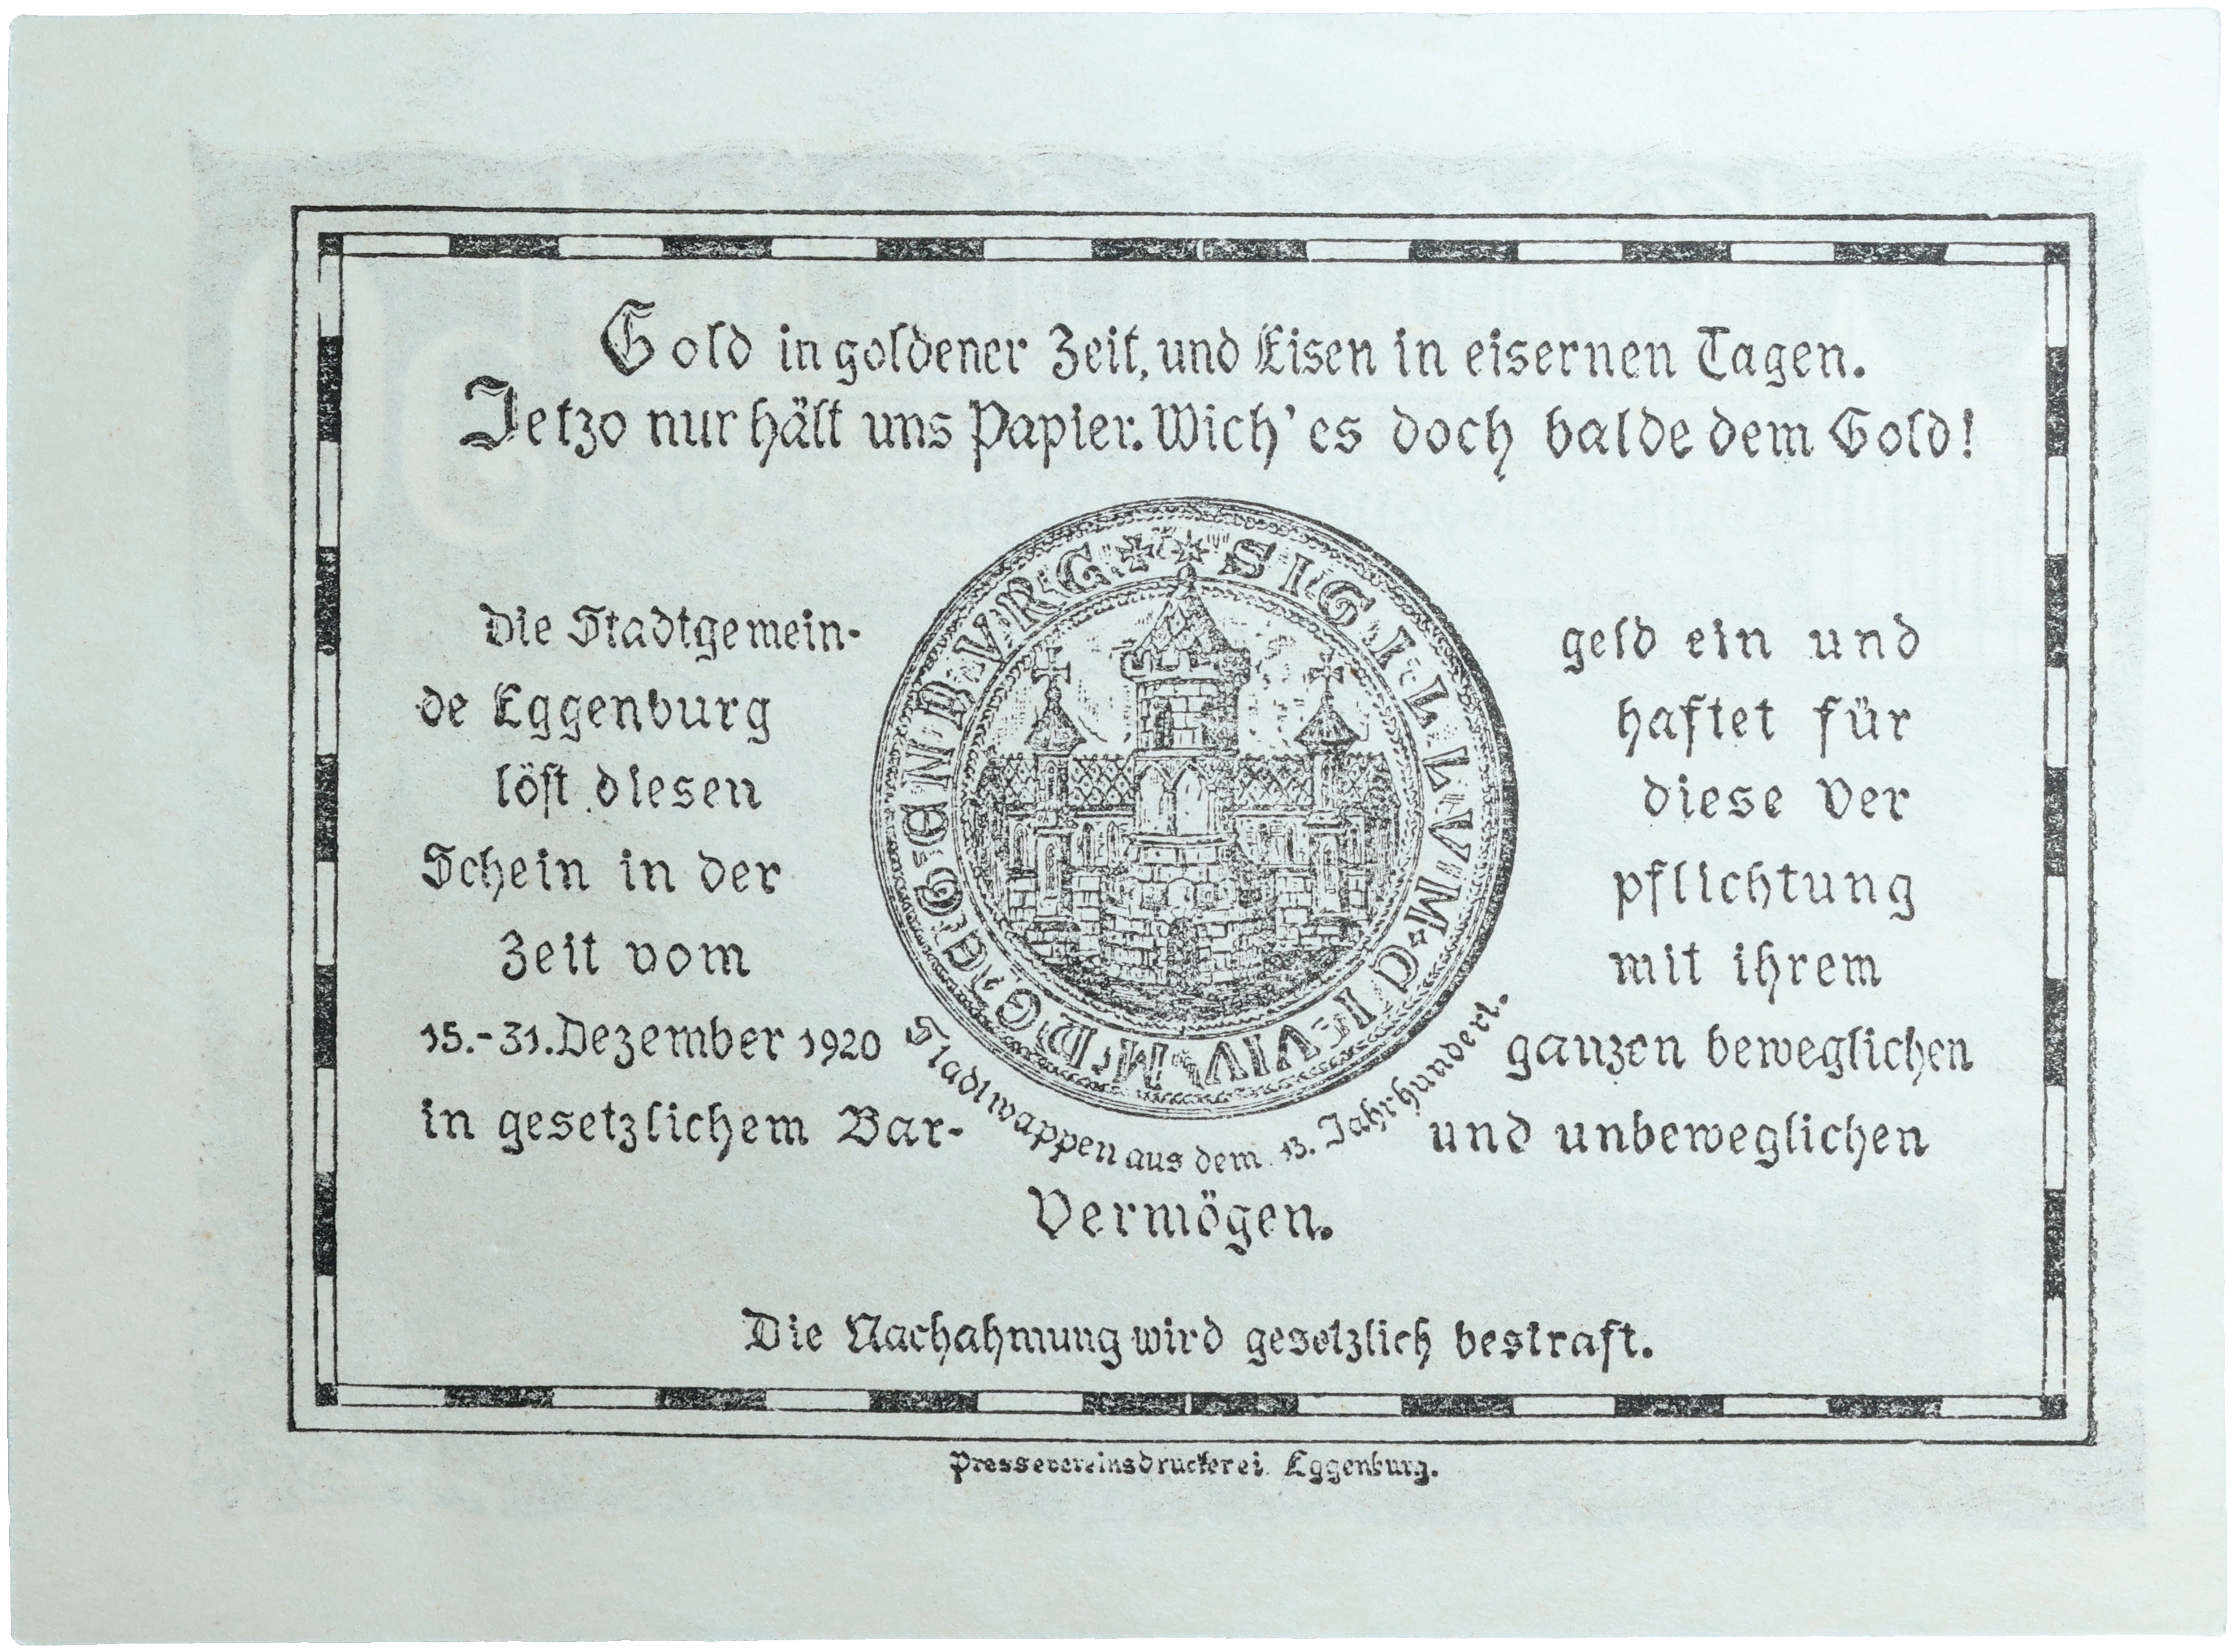 Gold in goldener Zeit, und Eisen in eisernen Tagen.
Jetzo nur hält uns Papier. Wich' es doch balde dem Gold!
Die Stadtgemein-
de Eggenburg
löst diesen
Schein in der
Zeit vom
15.-31. Dezember 1920
in gesetzlichem Bar-
geld ein und
haftet für
diese Ver
pflichtung
mit ihrem
ganzen beweglichen
und unbeweglichen
Vermögen.
SIGILLVM CIVIVM DE EGENBVRG
Stadtwappen aus dem 13. Jahrhundert.
Die Nachahmung wird gesetzlich bestraft.
Pressevereinsdruckerei Eggenburg.